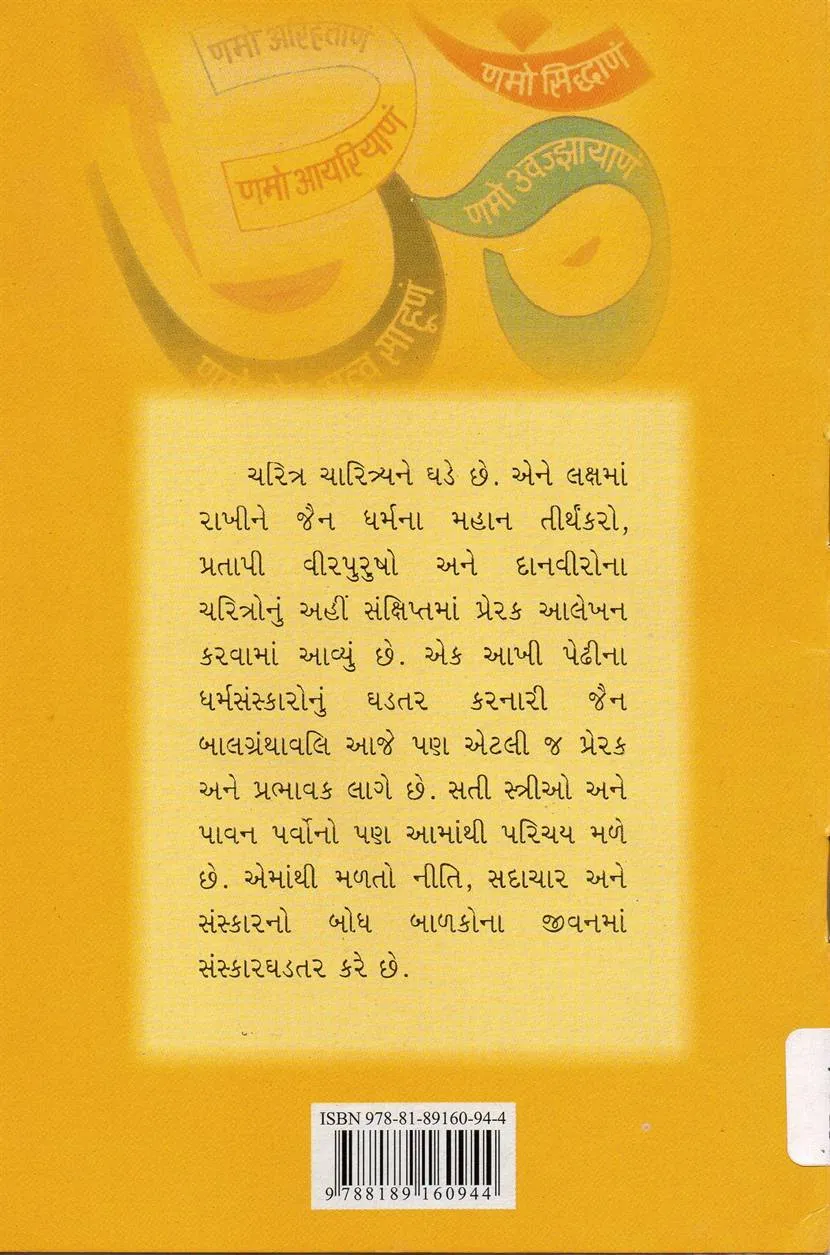 णमो अरिहंताणं
णमो सिद्धाणं
णमो आयरियाणं
णमो उवज्झायाणं
णमो साहूणं
ચરિત્ર ચારિત્ર્યને ઘડે છે. એને લક્ષમાં
રાખીને જૈન ધર્મના મહાન તીર્થંકરો,
પ્રતાપી વીરપુરુષો અને દાનવીરોના
ચરિત્રોનું અહીં સંક્ષિપ્તમાં પ્રેરક આલેખન
કરવામાં આવ્યું છે. એક આખી પેઢીના
ધર્મસંસ્કારોનું ઘડતર કરનારી જૈન
બાલગ્રંથાવલિ આજે પણ એટલી જ પ્રેરક
અને પ્રભાવક લાગે છે. સતી સ્ત્રીઓ અને
પાવન પર્વોનો પણ આમાંથી પરિચય મળે
છે. એમાંથી મળતો નીતિ, સદાચાર અને
સંસ્કારનો બોધ બાળકોના જીવનમાં
સંસ્કારઘડતર કરે છે.
ISBN 978-81-89160-94-4
9 788189 160944